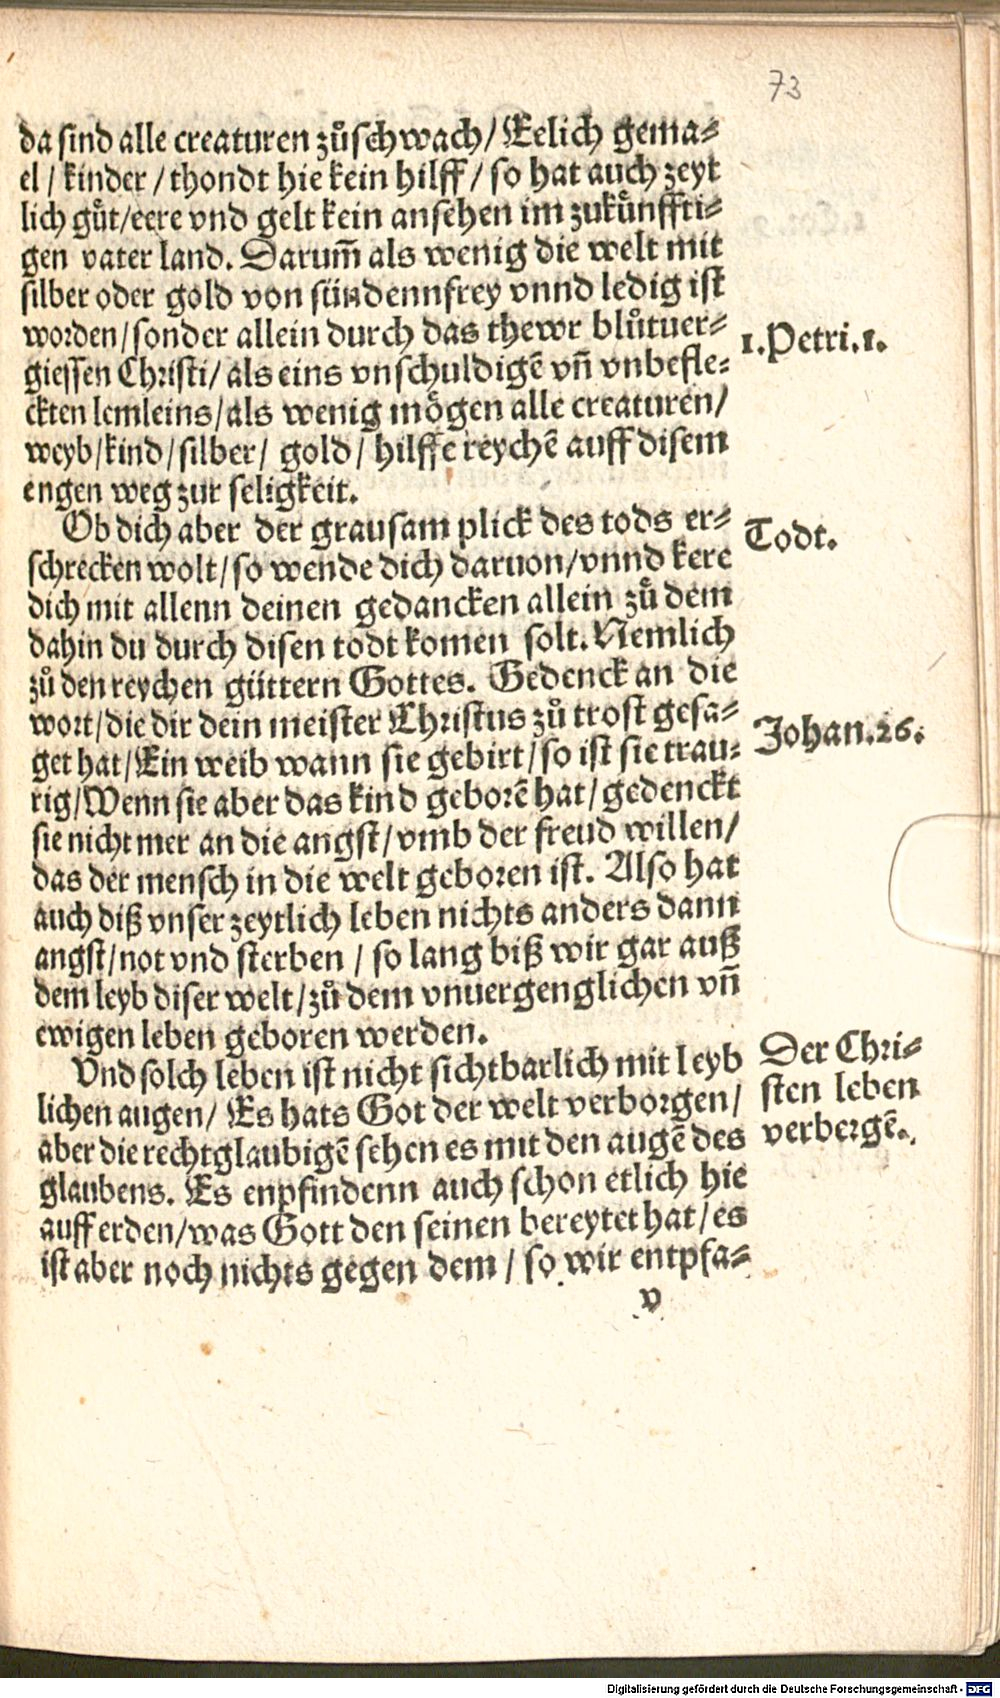 73
da sind alle creaturen zůschwach/ Eelich gema⸗
el / kinder / thondt hie kein hilff / so hat auch zeyt
lich gůt/eere vnd gelt kein ansehen im zukůnffti⸗
gen vater land. Darum̃ als wenig die welt mit
silber oder gold von sündennfrey vnnd ledig ist
worden/sonder allein durch das thewr blůtuer⸗
giessen Christi/ als eins vnschuldigẽ vñ vnbefle⸗
ckten lemleins/als wenig mögen alle creaturen/
weyb/kind/silber/ gold/ hilffe reychẽ auff disem
engen weg zur seligkeit.
1.Petri.1.
Ob dich aber der grausam plick des tods er⸗
schrecken wolt/so wende dich daruon/vnnd kere
dich mit allenn deinen gedancken allein zů dem
dahin du durch disen todt komen solt. Nemlich
zů den reychen güttern Gottes. Gedenck an die
wort/die dir dein meister Christus zů trost gesa⸗
get hat/Ein weib wann sie gebirt/so ist sie trau⸗
rig/Wenn sie aber das kind geborẽ hat/gedenckt
sie nicht mer an die angst/vmb der freud willen/
das der mensch in die welt geboren ist. Also hat
auch diß vnser zeytlich leben nichts anders dann
angst/not vnd sterben / so lang biß wir gar auß
dem leyb diser welt/zů dem vnuergenglichen vñ
ewigen leben geboren werden.
Todt.
Johan.26.
Vnd solch leben ist nicht sichtbarlich mit leyb
lichen augen/ Es hats Got der welt verborgen/
aber die rechtglaubigẽ sehen es mit den augẽ des
glaubens. Es enpfindenn auch schon etlich hie
auff erden/was Gott den seinen bereytet hat/es
ist aber noch nichts gegen dem / so wir entpfa⸗
Der Chri⸗
sten leben
verbergẽ.
v
Digitalisierung gefördert durch die Deutsche Forschungsgemeinschaft - DFG